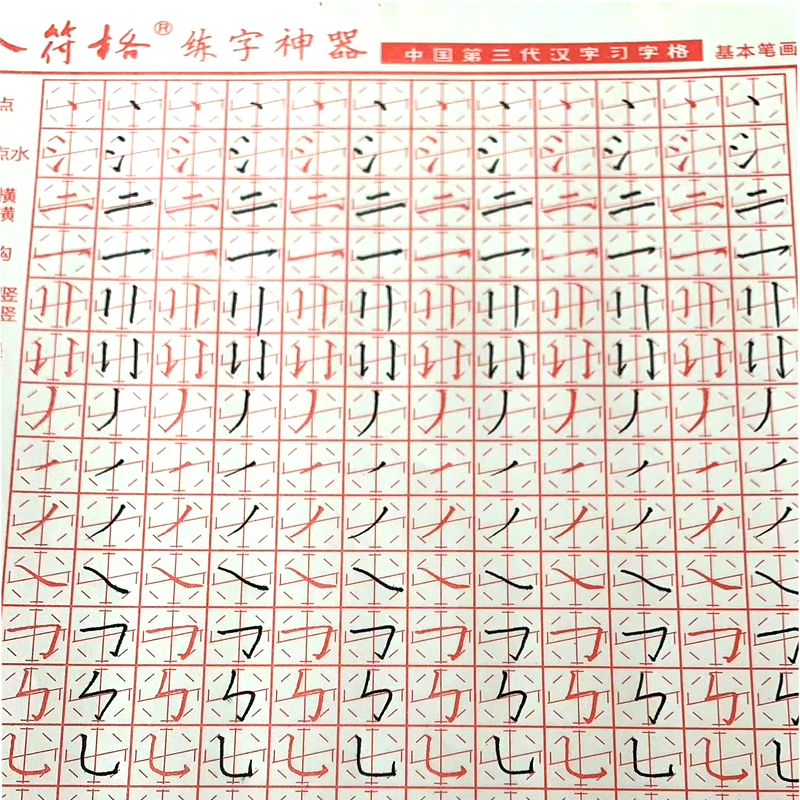 符格® 练字神器
中国第三代汉字习字格
基本笔画
点
点水
横
横
竖
竖